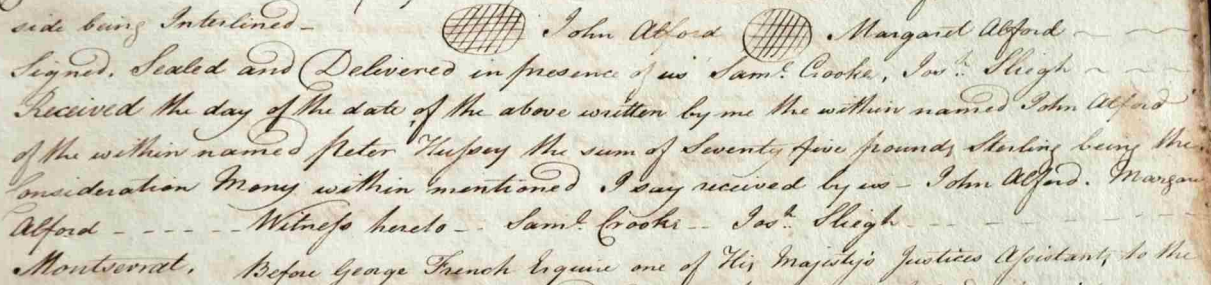 side being Interlined -   John Alford   Margaret Alford
Signed, Sealed and Delivered in presence of us Saml. Crooke, Josh. Sliegh
Received the day of the date of the above written by me the within named John Alford
of the within named Peter Hussey the sum of Seventy five pounds Sterling being the
Consideration Mony within mentioned I say received by us - John Alford. Margaret
Alford - - - - - - Witness hereto - - Saml. Crooke - - Josh. Sliegh - - - -
Montserrat. Before George French Esquire one of His Majesty's Justices Assistants to the